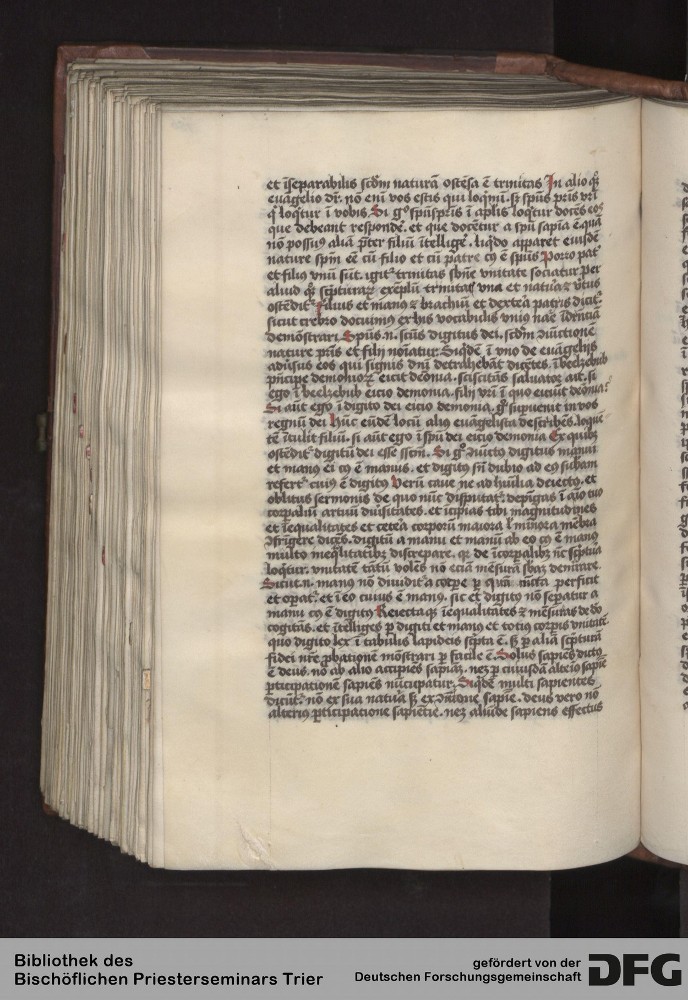 et īseparabilis scd̄m naturā ostēsa ē trinitas In alio qq̨
euāgelio dr̄. nō eni vos estis qui loq̄mi. sꝫ spūs pr̄is vr̄i
q̄ loq̄tur ī vobis. Si gº spūs pr̄is ī aplis loq̄tur docēs eos
que debeant respondē. et que docētur a spū sapīa ē. quā
nō possum9 aliā p̄ter filiū ītellige. liq̇do apparet eiusdē
nature spm̄ eē cū filio et cū patre cuius ē spūs Porro pat̄
et filius vnū sūt. igit̄ trinitas sb̄ne vnitate sociatur. Per
aliud qq̨ scpturaꝝ exēplū trinitatis vna et natura et v̄tus
ostēdit̄ Filius et manus et brachiū et dextera patris dicit̄.
sicut crebro docuimus ex his vocabulis vni9 nāe īdr̄ncia
demōstrari. Spūs .n. scūs digitus dei. scd̄m cōiūctionē
nature pr̄is et filij noīatur. Siq̇dē ī vno de euāgelijs
adūsus eos qui signis dn̄i detrahebāt dicētes. ī beelzebub
pn̄cipe demonioꝝ eicit demonia. sciscitās saluator ait. si
ego ī beelzebub eicio demonia. filij vr̄i ī quo eiciūt demonia?
Si aūt ego ī digito dei eicio demonia. gº supuenit in vos
regnū dei Hūc eūdē locū alius euāgelista describēs. loquē
tē ītulit filiū. si aūt ego ī spū dei eicio demonia Ex quibꝫ
ostēdit̄ digitū dei esse sc̄m. Si gº cōiūctus digitus manui
et manus ei cuius ē manus. et digitus sn̄ dubio ad eius subam
refert̄ cuius ē digitus Verū caue ne ad humilia deiectus. et
oblitus sermonis de quo nūc disputat̄. depīgas ī aīo tuo
corpaliū artuū diūsitates. et īcipias tibi magnitudines
et īequalitates et cetera corporū maiora l̄ minora mēbra
cōfrīgere dicēs. digitū a manu et manū ab eo cuius ē manus
multo ineq̄litatibꝫ discrepare. qꝛ de īcorpalibꝫ nūc scptura
loq̄tur. vnitatē tātū volēs nō eciā mēsurā sbāe demōstrare.
Sicut .n. manus nō diuidit̄ a corpe p quā cūcta perficit
et opat̄. et ī eo cuius ē manus. sic et digitus nō sepatur a
manu cuius ē digitus Reiecta qꝫ īequalitates et mēsuras de deo
cogitās. et ītelliges p digiti et manus et totius corpis vnitatē.
quo digito lex ī tabulis lapideis scpta ē. Sꝫ p aliā scpturā
fidei nr̄e pbationē mōstrari p facile ē. Solus sapiēs dictus
ē deus. nō ab alio accipiēs sapiaꝫ. neqꝫ p cuiusdā alterius sapīe
pticipationē sapiēs nūcupatur. Siq̇dē multi sapientes
dicūt̄. nō ex sua natura sꝫ ex cōmunione sapīe. deus vero nō
alterius pticipatione sapientie. neqꝫ aliūde sapiens effectus
Bibliothek des
Bischöflichen Priesterseminars Trier
gefördert von der
Deutschen Forschungsgemeinschaft
DFG